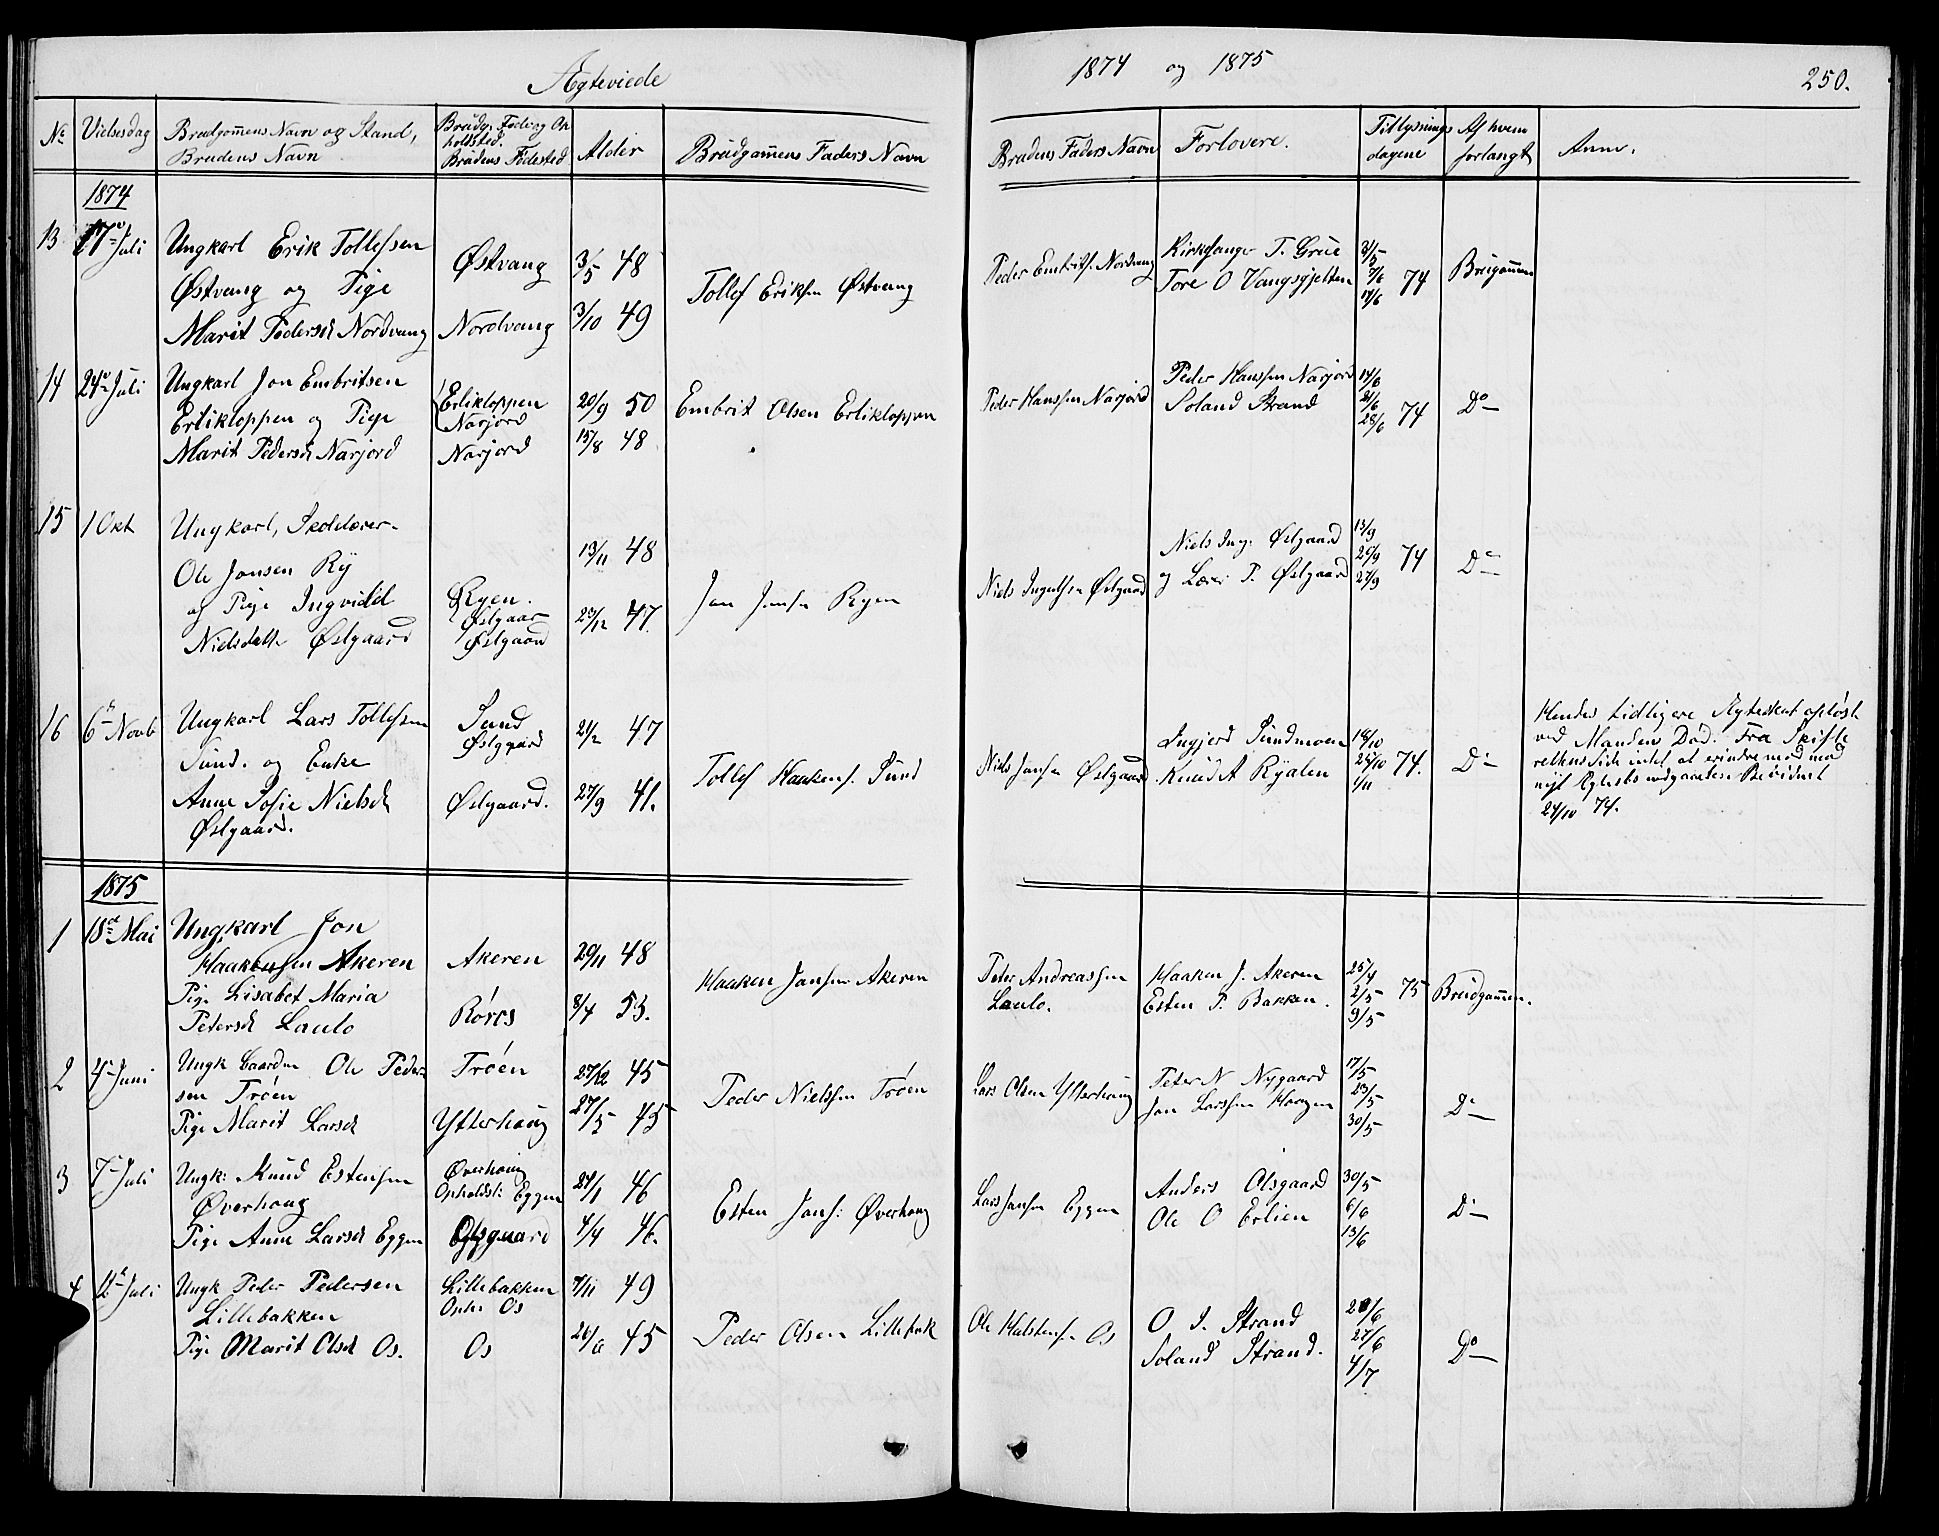 Ægteviede
1874 og 1875
250.
No
Vielsesdag
Brudgomens Navn og Stand,
Brudens Navn
Brudg. Føde og Op
holdsted.
Brudens Fødested
Alder
Brudgommens Faders Navn
Brudens Faders Navn
Forlovere.
Tillysnings
dagene
Af hvem
forlangt
Anm.
1874
13 17de Juli
Ungkarl Erik Tollefsen
Østvang og Pige
Marit Pedersd Nordvang
Østvang
Nordvang
3/5 48
3/10 49
Tollef Eriksen Østvang
Peder Embrits. Nordvang
Kirkesanger T. Grue
Tore O Vangsgjelten
31/5
7/6 74
14/6
Brudgommen
14 24de Juli
Ungkarl Jon Embritsen
Erlikloppen og Pige
Marit Pedersd Narjord
Erlikloppen
Narjord
Narjord
20/9 50
15/8 48
Embrit Olsen Erlikloppen
Peder Hanssen Narjord
Peder Hanssen Narjord
Soland Strand
14/6
21/6 74
28/6
Do
15 1 Okt
Ungkarl, Skolelærer
Ole Jonsen Ry
og Pige Ingvild
Nielsdatter Østgaard
Ryen.
Østgaar
Østgaard
13/11 48
23/12 47
Jon Jonsen Ryen
Niels Ingvaldsen Østgaard
Niels Ing. Østgaard
og Lærer P. Østgaard
13/9
20/9 74
27/9
Do
16 6te Novb
Ungkarl Lars Tollefsen
Sund. og Enke
Anne Sofie Nielsd
Østgaard.
Sund
Østgaard
Østgaard.
21/2 47
27/9 41.
Tollef Haakens. Sund
Niels Jonsen Østgaard
Ingjerd Sundmoen
Knud A Ryalen
18/10
25/10 74.
1/11
Do
Hendes tidligere Ægteskab opløst
ved Mandens Død. Fra Skifte
rettens Side intet at erindre mod
nyt Ægtesk. indgaaelse. Bevidnet
24/10 74.
1875
1 18de Mai
Ungkarl Jon
Haakensen Akeren
Pige Lisabet Maria
Petersd Laulo
Akeren
Røros
29/11 48
8/4 53.
Haaken Jonsen Akeren
Peter Andreassen
Laulo.
Haaken J. Akeren
Esten P. Bakken.
25/4
2/5 75
9/5
Brudgommen.
2 4de Juni
Ungk Gaardm Ole Peder
sen Trøen
Pige Marit Larsd
Trøen
Ytterhaug
27/12 45
27/5 45
Peder Nielssen Trøen
Lars Olsen Ytterhaug
Peter N Nygaard
Jon Larssen Haagen
17/5
23/5
30/5
Do
3 7de Juli
Ungk: Knud Estensen
Øverhaug
Pige Anne Larsd Eggen
Øverhaug
Opholdst: Eggen
Olsgaard
24/1 46
4/4 46.
Esten Jons: Øverhaug
Lars Jonsen Eggen
Anders Olsgaard
Ole O Erlien
30/5
6/6
13/6
Do
4 12te Juli
Ungk Peder Pedersen
Lillebakken
Pige Marit Olsd Os.
Lillebakken
Opho Os
Os
7/11 49
26/6 45
Peder Olsen Lillebak
Ole Halstensen Os
O J. Strand
Soland Strand.
20/6
27/6
4/7
Do